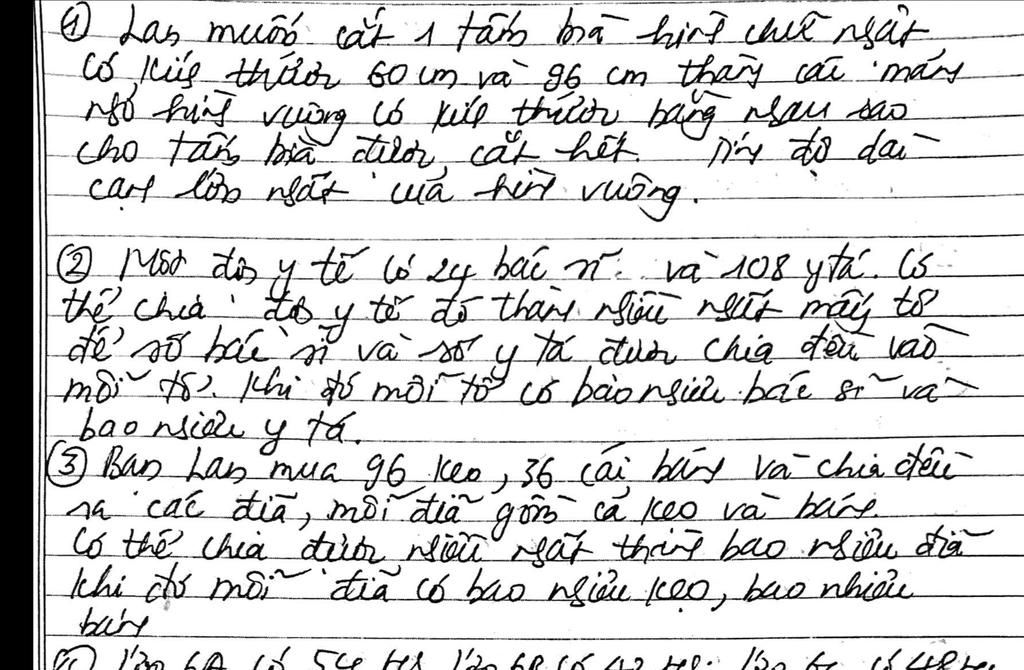 ① Lan muốn cắt 1 tấm bìa hình chữ nhật
có kích thước 60 cm và 96 cm thành các mảnh
nhỏ hình vuông có kích thước bằng nhau sao
cho tấm bìa được cắt hết. Tính độ dài
cạnh lớn nhất của hình vuông.
② Một đội y tế có 24 bác sĩ và 108 y tá. Có
thể chia đội y tế đó thành nhiều nhất mấy tổ
để số bác sĩ và số y tá được chia đều vào
mỗi tổ. Khi đó mỗi tổ có bao nhiêu bác sĩ và
bao nhiêu y tá.
③ Bạn Lan mua 96 kẹo, 36 cái bánh và chia đều
ra các đĩa, mỗi đĩa gồm cả kẹo và bánh
Có thể chia được nhiều nhất thành bao nhiêu đĩa
khi đó mỗi đĩa có bao nhiêu kẹo, bao nhiêu
bánh
lớp 6A có 54 hs, lớp 6B có 42 hs. lớp 6C có 48 hs